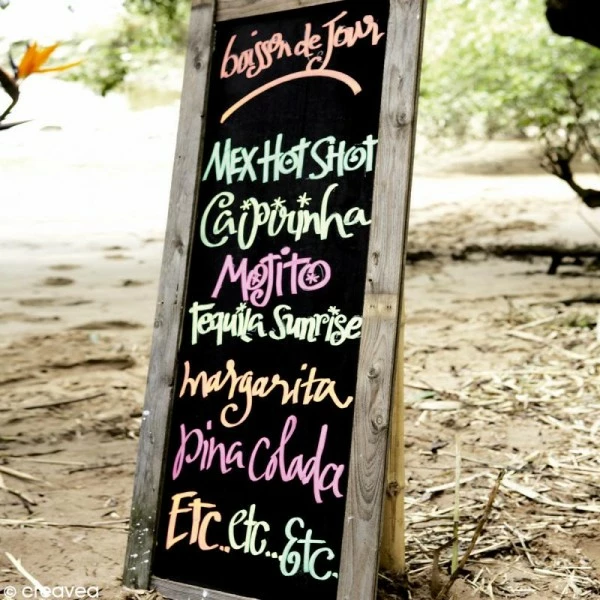 boisson de Jour
MEX HOT SHOT
Caipirinha
MOJITO
Tequila Sunrise
margarita
pina colada
Etc.. etc... Etc.
© creavea